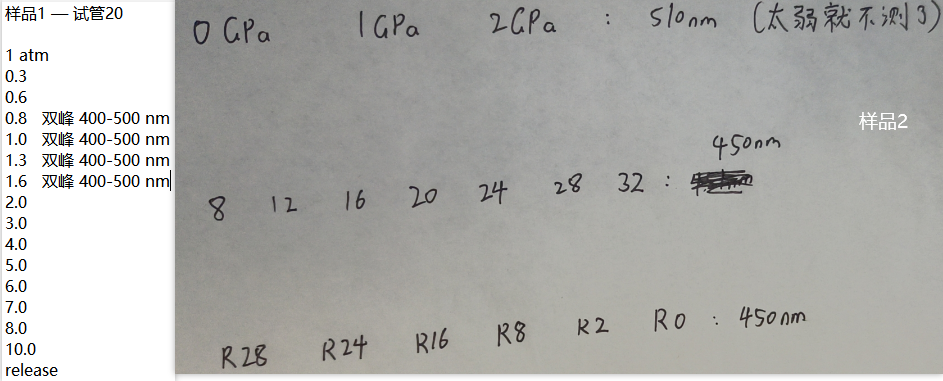 样品1 — 试管20
1 atm
0.3
0.6
0.8 双峰 400-500 nm
1.0 双峰 400-500 nm
1.3 双峰 400-500 nm
1.6 双峰 400-500 nm
2.0
3.0
4.0
5.0
6.0
7.0
8.0
10.0
release
0 GPa 1GPa 2GPa : 510nm (太弱就不测了)
样品2
450nm
8 12 16 20 24 28 32 :
R28 R24 R16 R8 R2 R0 : 450nm